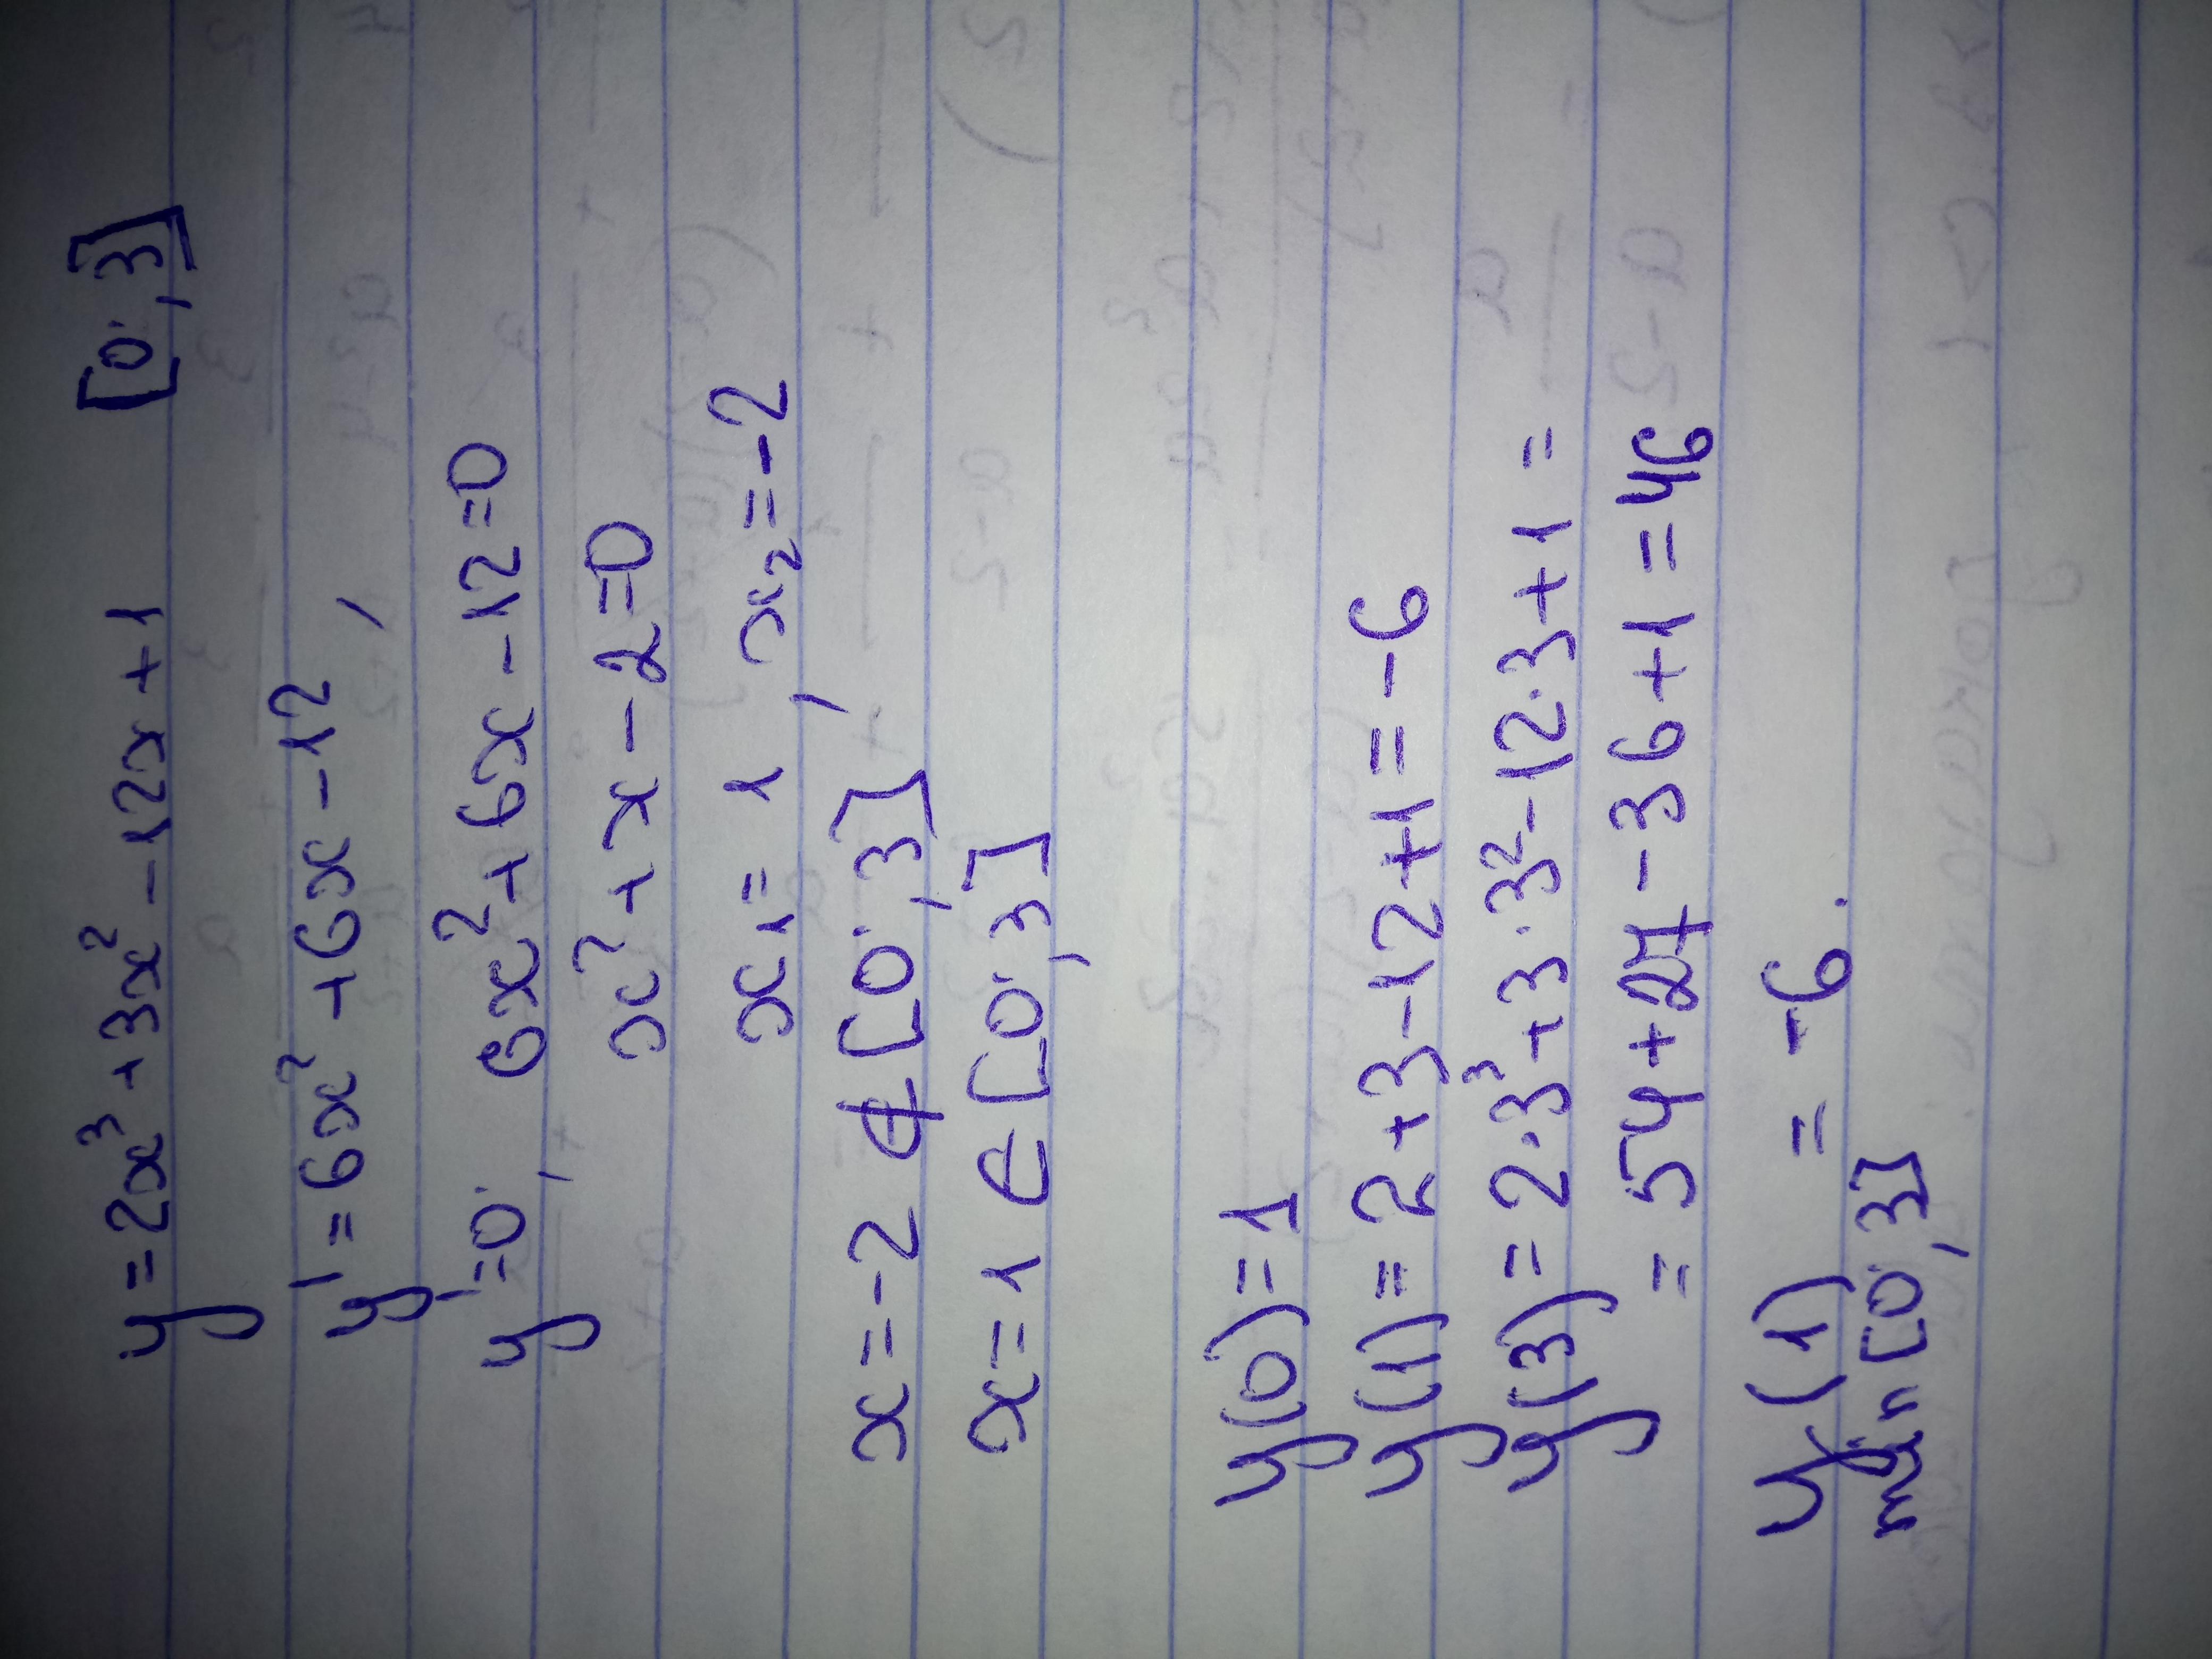 y = 2x³ + 3x² - 12x + 1 [0; 3]
y' = 6x² + 6x - 12
y' = 0; 6x² + 6x - 12 = 0
x² + x - 2 = 0
x₁ = 1, x₂ = -2
x = -2 ∉ [0; 3]
x = 1 ∈ [0; 3]
y(0) = 1
y(1) = 2 + 3 - 12 + 1 = -6
y(3) = 2·3³ + 3·3² - 12·3 + 1 =
= 54 + 27 - 36 + 1 = 46
y(1) = -6.
min [0; 3]